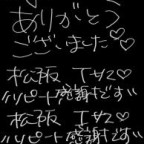 ありがとう
ございました♡♡
松阪 Tサマ♡
"リピート感謝です"
松阪 Tサマ♡
"リピート感謝です"